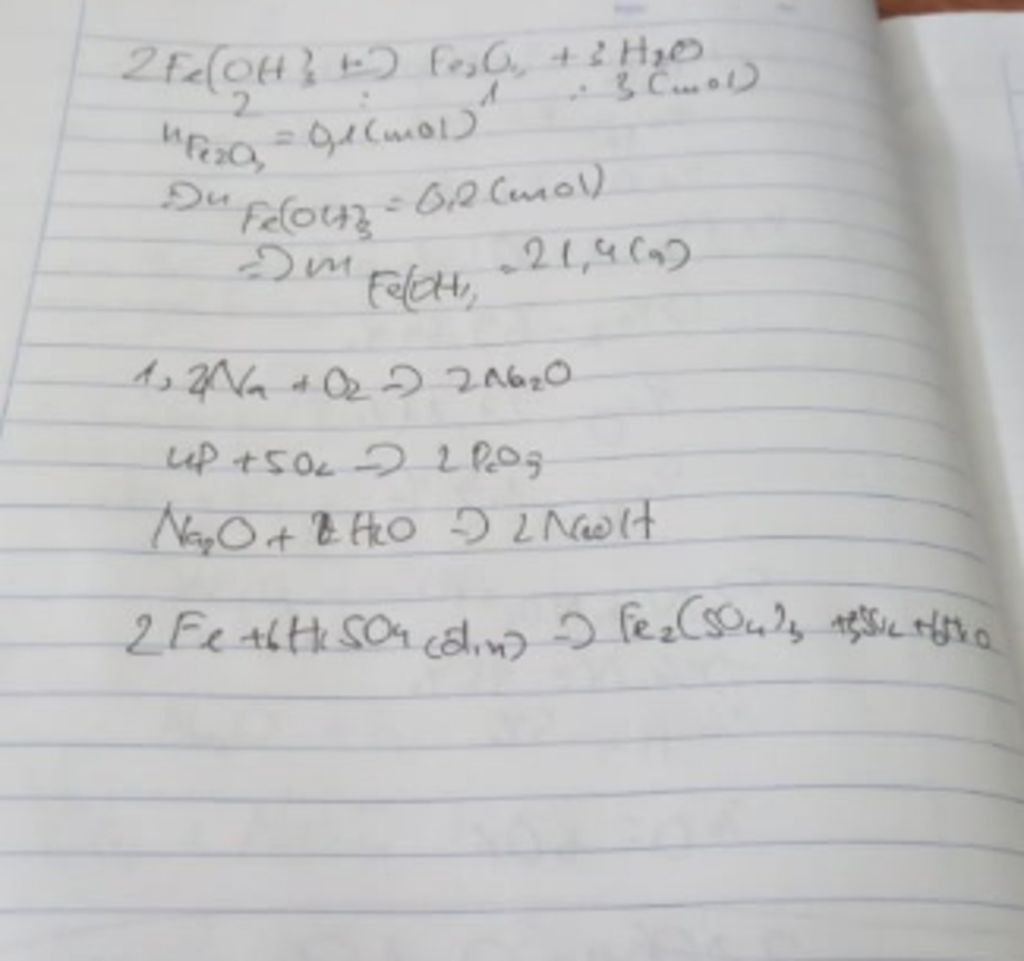 2Fe(OH)3 t-> Fe2O3 + 3H2O
2 : 1 : 3 (mol)
nFe2O3 = 0,1 (mol)
=> n Fe(OH)3 = 0,2 (mol)
=> m Fe(OH)3 = 21,4 (g)
1, 2Na + O2 => 2Na2O
4P + 5O2 => 2P2O5
Na2O + H2O => 2NaOH
2Fe + 6H2SO4 (đ,n) => Fe2(SO4)3 + 3SO2 + 6H2O